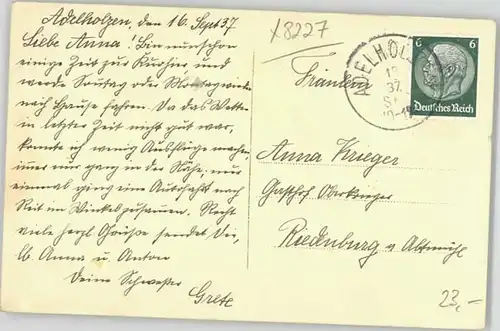 Adelholzen, den 16. Sept 37.
Liebe Anna! Bin nun schon
einige Zeit zur Kur hier und
werde Sonntag oder Montag wieder
nach Hause fahren. Da das Wetter
in letzter Zeit nicht gut war,
konnte ich wenig Ausflüge machen,
immer nur ganz in der Nähe, nur
einmal ging eine Autofahrt nach
Reit im Winkel zusammen. Recht
viele herzl. Grüße sendet Dir,
lb. Anna u. Anton
Deine Schwester
Grete
X8227
ADELHOLZ
37
6 6
Deutsches Reich
Fräulein
Anna Krieger
Gasthof
Riedenburg a Altmühl
23,-